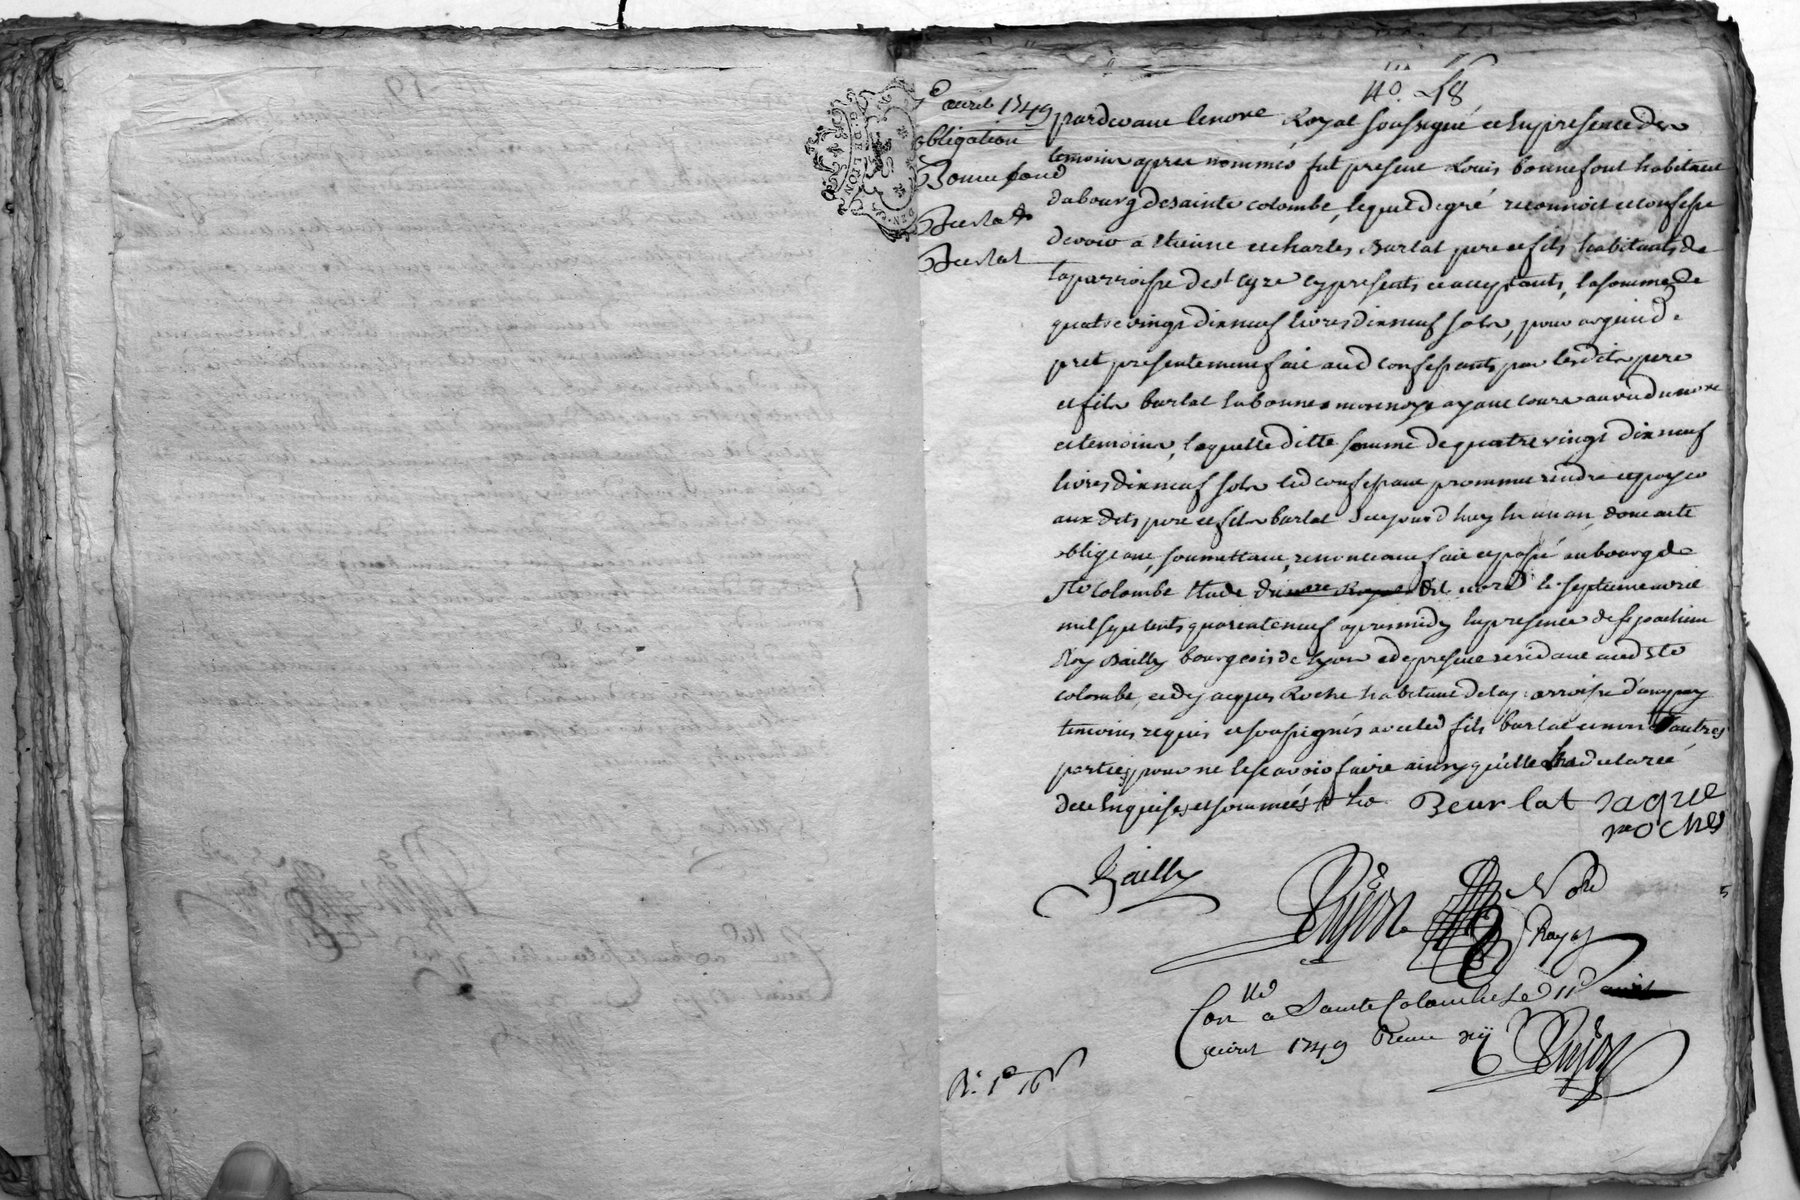 40. 58
7e avril 1749
obligation
Bonnefond
Burlat
Burlat
G. DE LYON
DEN. LES
pardevant le no.re Royal soussigné et En presence des
temoins apres nommés fut present Louis bonnefont habitant
du bourg de sainte colombe, lequel de gré reconnoit et confesse
devoir a Etienne et charles Burlat pere et fils habitants de
la parroisse de st cyre cy presents et acceptants, la somme de
quatre vingt dix neuf livres dix neuf sols, pour argent de
pret presentement fait aud confessant par lesdits pere
et fils burlat En bonne monnoye ayant cours au vu du no.re
et temoins, laquelle ditte somme de quatre vingt dix neuf
livres dix neuf sols led confessant promme rendre et payer
aux dits pere et fils burlat d'aujourd'huy En un an, dont acte
obligeant, soumettant, renonceant fait et passé au bourg de
Ste Colombe Etude du no.re Royal dit no.re le septieme avril
mil sept cents quarente neuf apres midy En presence de sr joachim
Roy Bailly bourgeois de Lyon et de present residant aud Ste
colombe, et de jacques Roche habitant de la parroisse d'ampuy
temoins requis et soussignés avec led fils burlat et non les autres
parties pour ne le sçavoir faire ainsy qu'elle ont declareé
de ce Enquises et sommeés
Beurlat jaque
roches
Bailly
No.re
Royal
Con.llé a Sainte Colombe Le 11e
avril 1749 Reçu xij s
R. 1# 16s